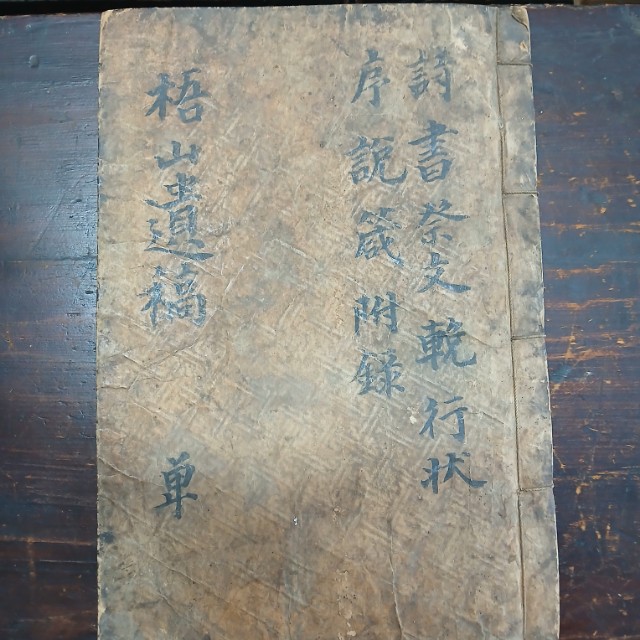 詩書祭文輓行狀
序說箴附錄
梧山遺稿 單